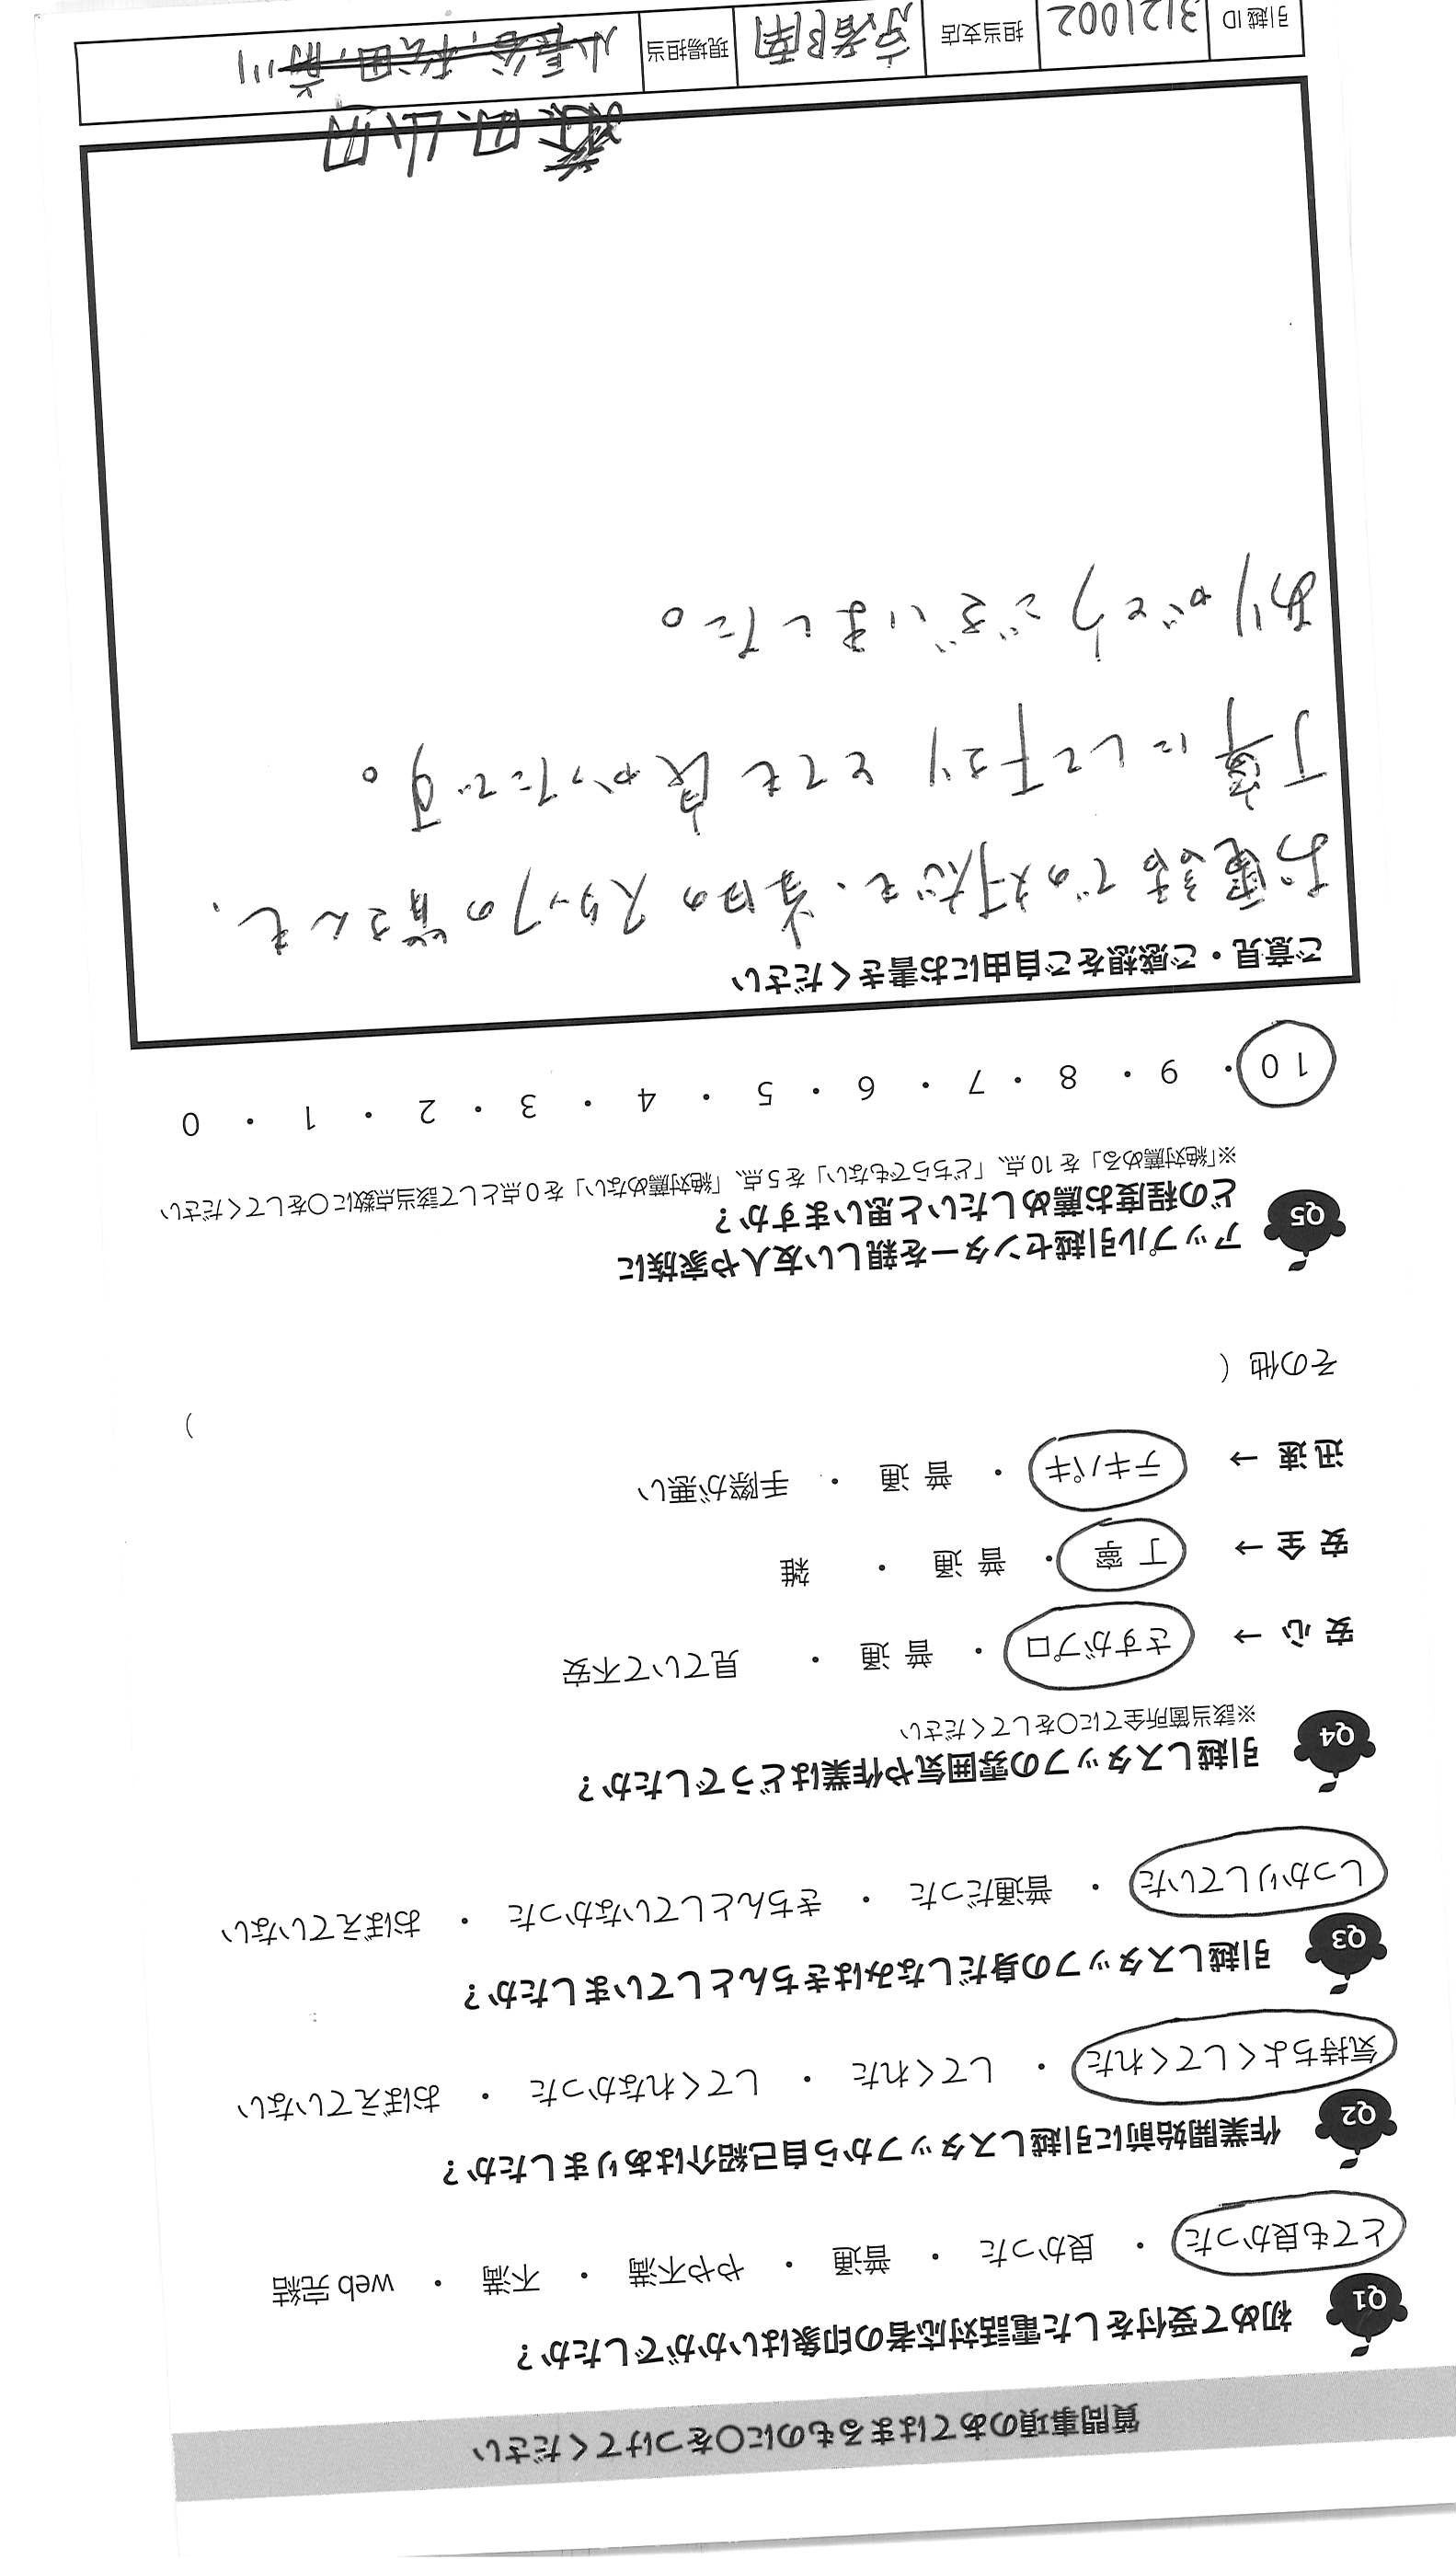 質問事項のあてはまるものに○をつけてください
Q1 初めて受付をした電話対応者の印象はいかがでしたか？
とても良かった ・ 良かった ・ 普通 ・ やや不満 ・ 不満 ・ web 完結
Q2 作業開始前に引越しスタッフから自己紹介はありましたか？
気持ちよくしてくれた ・ してくれた ・ してくれなかった ・ おぼえていない
Q3 引越しスタッフの身だしなみはきちんとしていましたか？
しっかりしていた ・ 普通だった ・ きちんとしていなかった ・ おぼえていない
Q4 引越しスタッフの雰囲気や作業はどうでしたか？
※該当箇所全てに○をしてください
安 心 → さすがプロ ・ 普 通 ・ 見ていて不安
安 全 → 丁 寧 ・ 普 通 ・ 雑
迅 速 → テキパキ ・ 普 通 ・ 手際が悪い
その他（ ）
Q5 アップル引越センターを親しい友人や家族に
どの程度お薦めしたいと思いますか？
※「絶対薦める」を 10 点、「どちらでもない」を 5 点、「絶対薦めない」を 0 点として該当点数に○をしてください
10 ・ 9 ・ 8 ・ 7 ・ 6 ・ 5 ・ 4 ・ 3 ・ 2 ・ 1 ・ 0
ご意見・ご感想をご自由にお書きください
お電話での対応も、当日のスタッフの皆さんも、
丁寧にして下さり とても良かったです。
ありがとうございました。
引越ID 3121002 担当支店 京都南 現場担当